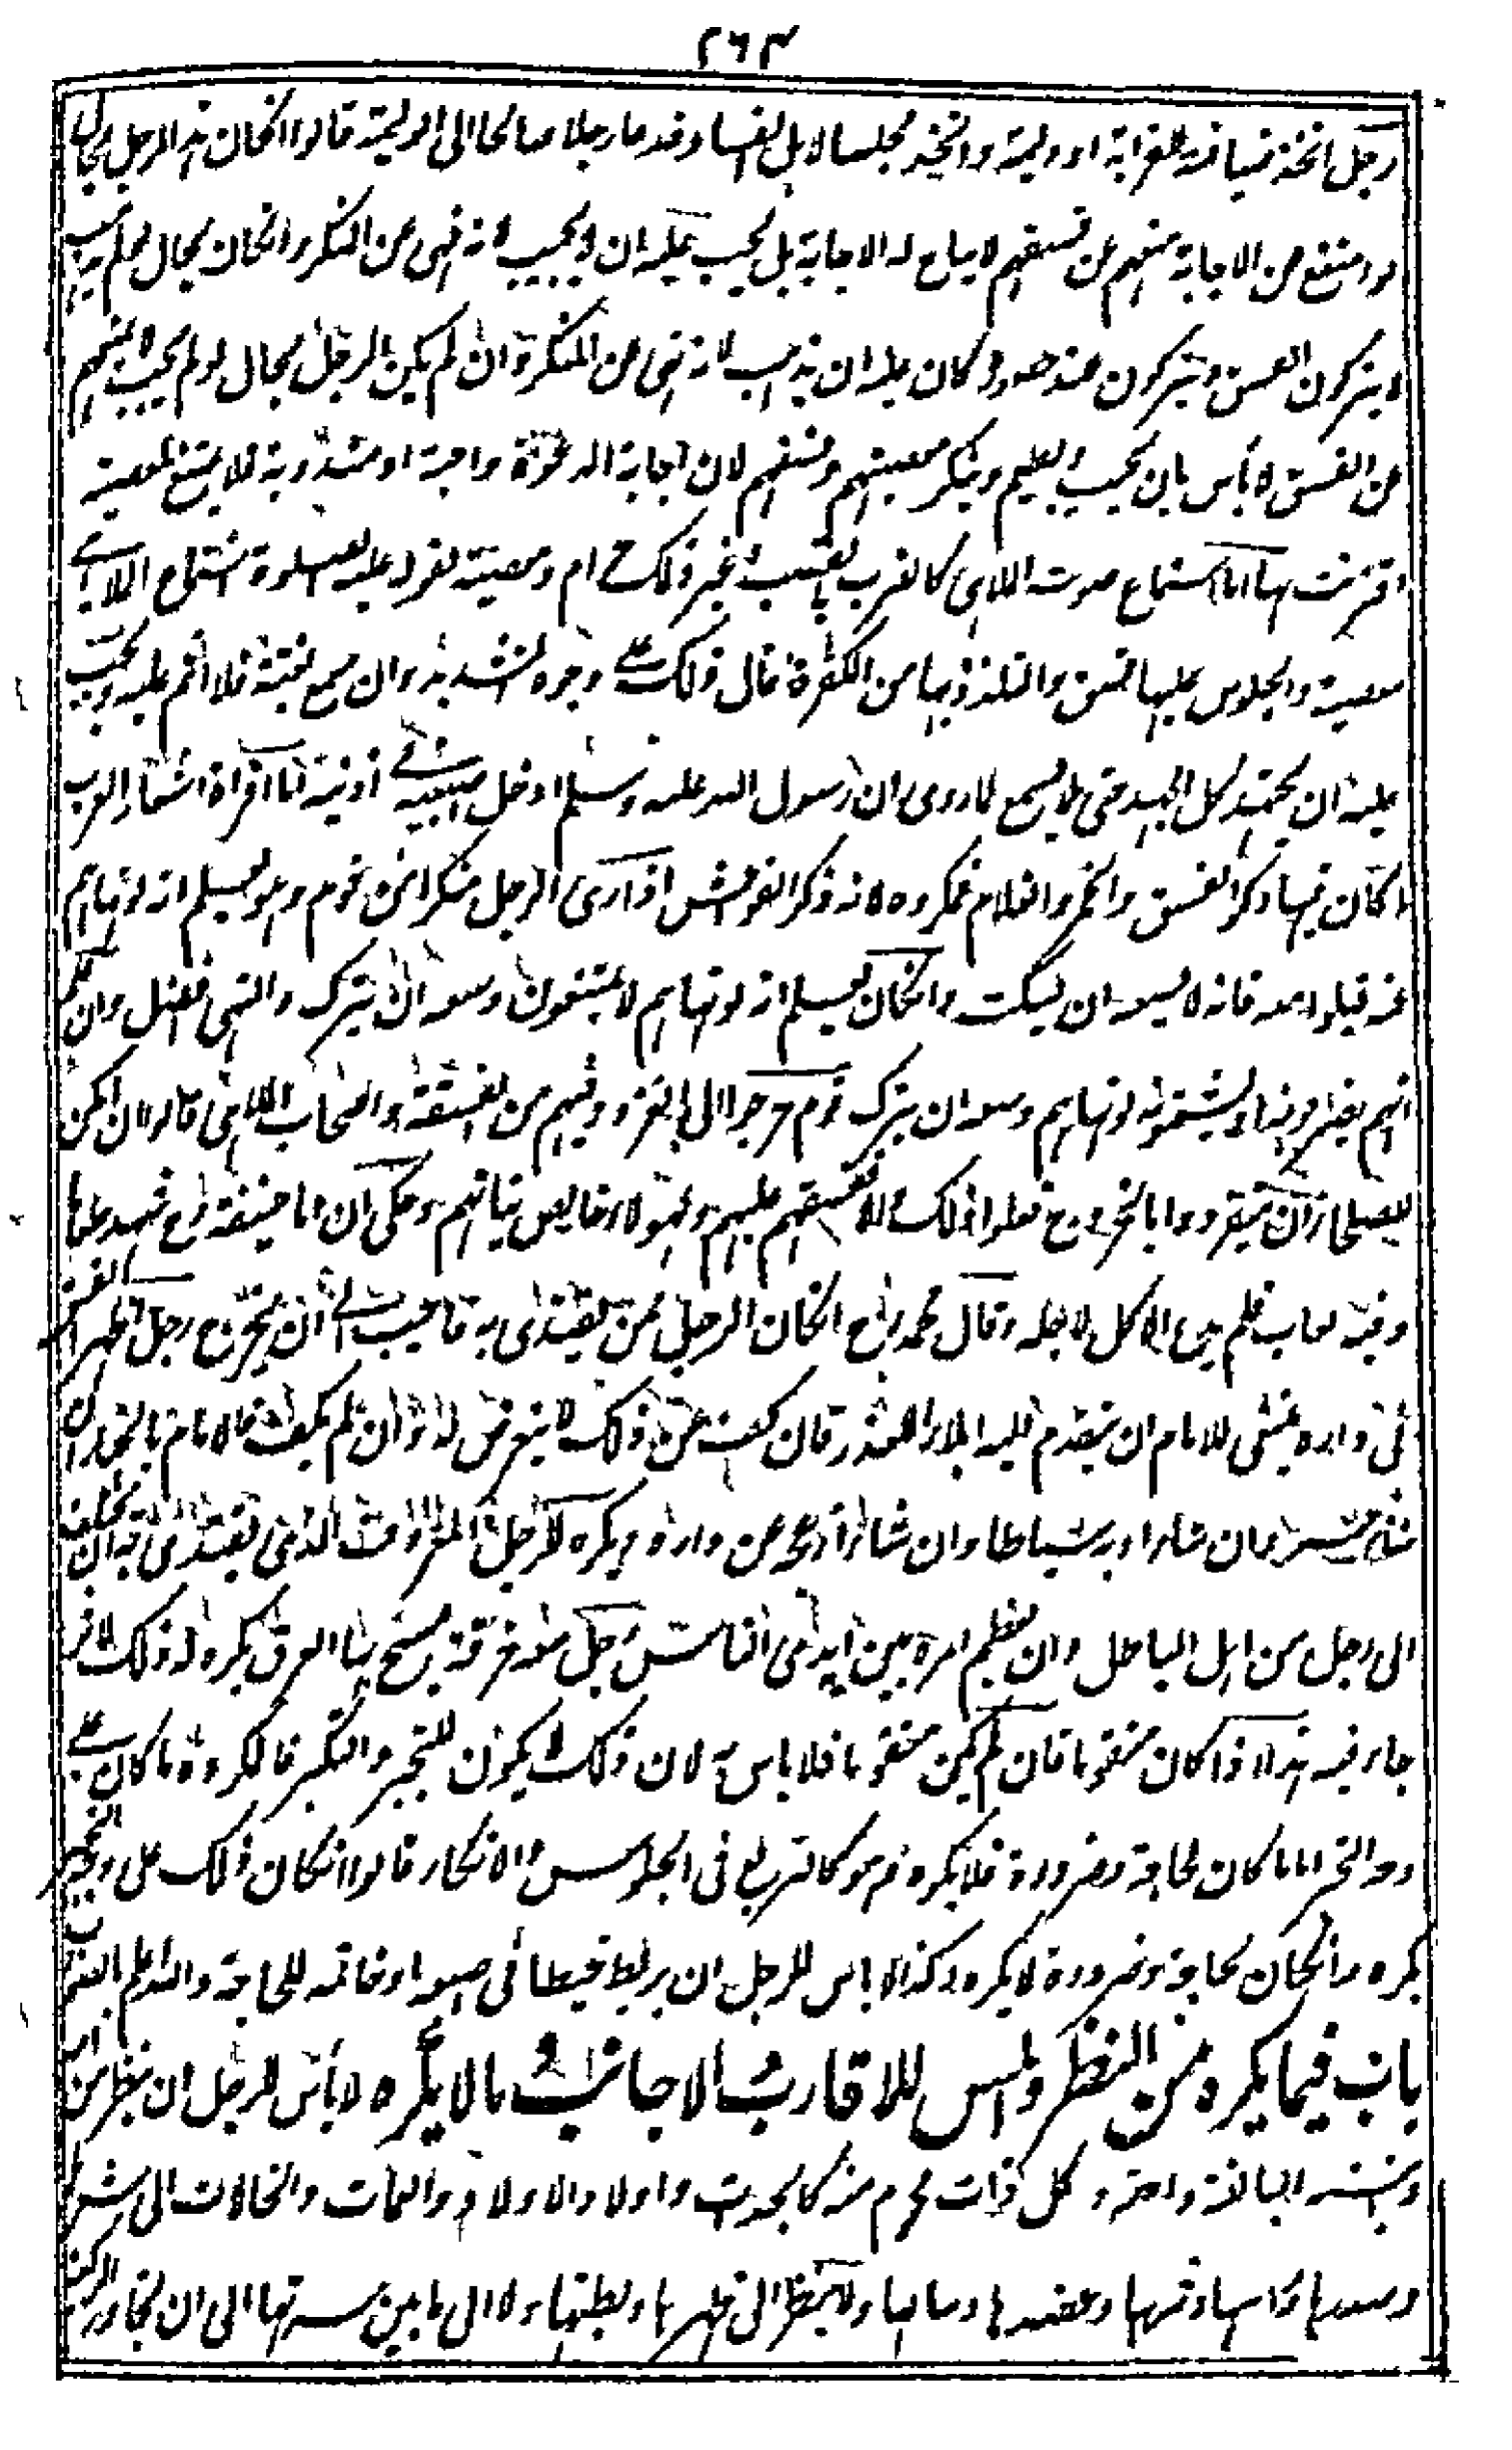 ٢٦٣
رجل اتخذ ضيافة للقرابة او وليمة واتخذ مجلسا لاهل الفساد فدعا رجلا صالحا الى الوليمة قالوا انكان هذا الرجل بحال
لو امتنع من الاجابة منعهم عن فسقهم لا يباح له الاجابة بل يجب عليه ان لا يجيب لانه نهى عن المنكر وانكان بحال لو لم يجب
لا يتركون الفسق ويتركون عند حضوره كان عليه ان يذهب لانه نهى عن المنكر وان لم يكن الرجل بحال لو لم يجب لا يمنعهم
عن الفسق لا بأس بان يجيب ويطعم وينكر معصيتهم وفسقهم لان اجابة الدعوة واجبة او مندوبة فلا يمتنع لمعصية
اقترنت بها اما استماع صوت الملاهى كالضرب بالقضيب وغير ذلك حرام ومعصية لقوله عليه الصلوة استماع الملاهى
معصية والجلوس عليها فسق والتلذذ بها من الكفر انما قال ذلك على وجه التشديد وان سمع بغتة فلا اثم عليه ويجب
عليه ان يجتهد كل الجهد حتى لا يسمع لما روى ان رسول الله عليه وسلم ادخل اصبعيه فى اذنيه اما قراءة اشعار العرب
ما كان فيها ذكر الفسق والخمر والغلام فمكروه لانه ذكر الفواحش اذا رأى الرجل منكرا من قوم وهو يعلم انه لو نهاهم
عنه قبلوا منه فانه لا يسعه ان يسكت وانكان يعلم انه لو نهاهم لا يمتنعون وسعه ان يترك والنهى افضل وان علم
انهم يضربونه او يشتمونه لو نهاهم وسعه ان يترك قوم خرجوا الى الغزو وفيهم من الفسقة واصحاب الملاهى قالوا ان امكن
للصلحاء ان ينفردوا بالخروج فعلوا ذلك والا ففسقهم عليهم ولهؤلاء خالص نياتهم وحكى ان ابا حنيفة رح شهد طعاما
وفيه لعاب فلم يدع الاكل لاجله وقال محمد رح انكان الرجل ممن يقتدى به فاحب الى ان يخرج رجل اظهر الفسق
فى داره ينبغى للامام ان يتقدم اليه ابلاء للعذر فان كف عن ذلك لا يتعرض له وان لم يكف فالامام بالخيار ان
شاء حبسه وان شاء ادبه سياطا وان شاء ازعجه عن داره ويكره للرجل المعروف الذى يقتدى به ان يختلف
الى رجل من اهل الباطل وان يعظم امره بين ايدى الناس رجل معه خرقة يمسح بها العرق يكره له ذلك
جاء فيه هذا اذا كان متقوما فان لم يكن متقوما فلا باس به لان ذلك لا يكون للتجبر والتكبر فالمكروه ما كان على
وجه التجبر اما ما كان لحاجة وضرورة فلا يكره فهو كالتربع فى الجلوس والاتكاء قالوا انكان ذلك على وجه التجبر
يكره وانكان لحاجة وضرورة لا يكره وكذا لا باس للرجل ان يربط خيطا فى اصبعه او خاتمه للحاجة والله اعلم بالصواب
باب فيما يكره من النظر والمس للاقارب والاجانب وما لا يكره لا بأس للرجل ان ينظر من امه
وبنته البالغة واخته وكل ذات محرم منه كالجدات واولاد الاولاد والعمات والخالات الى شعرها
وصدرها ورأسها وثديها وعضدها وساقها ولا ينظر الى ظهرها وبطنها ولا الى ما بين سرتها الى ان يجاوز الركبة